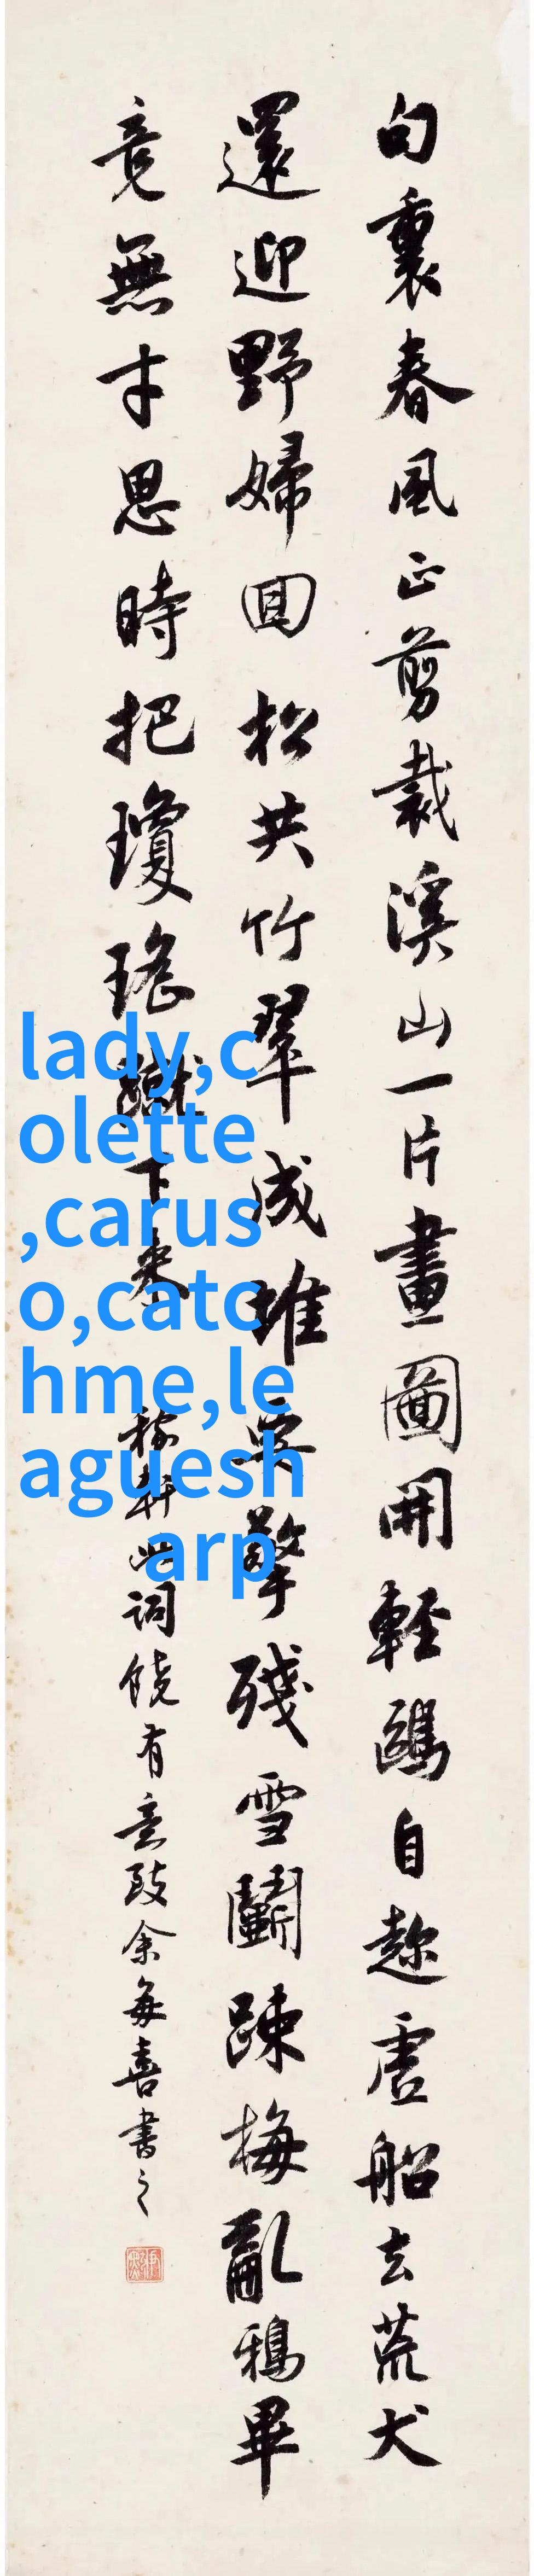 句裏春風正剪裁溪山一片畫圖開輕鷗自趂虛船去荒犬
還迎野婦囬松共竹翠成堆要擎殘雪鬭踈梅亂鴉畢
竟無才思時把瓊瑤蹴下來
稼軒此詞饒有意致余每喜書之
lady,c
olette
,carus
o,catc
hme,le
aguesh
arp